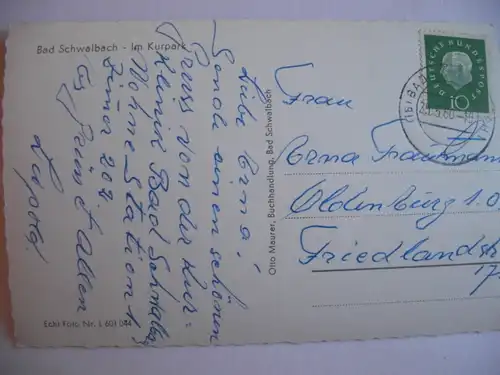 Bad Schwalbach - Im Kurpark
Liebe Erna!
Sende einen schönen
Gruss von der Kur=
klinik Bad Schwalbach
Wohne Station 4
Zimer 202
Es grüsst allen
DEUTSCHE BUNDESPOST
10
(16) BAD
Frau
Erna Trautmann
Oldenburg i. O.
Friedlandstr
17
Otto Maurer, Buchhandlung, Bad Schwalbach
Echt Foto. Nr. L 601 044